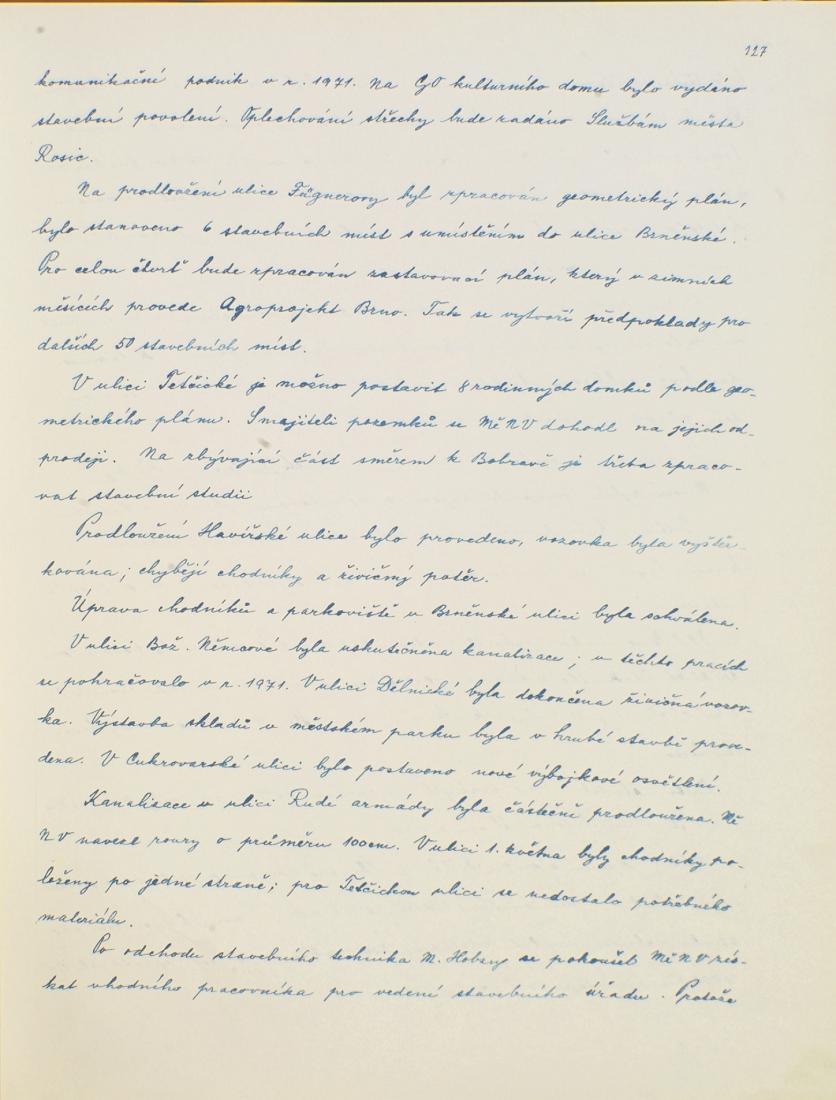 127
komunikační podnik v r. 1971. Na GO kulturního domu bylo vydáno
stavební povolení. Oplechování střechy bude zadáno Službám města
Rosic.
Na prodloužení ulice Fügnerovy byl zpracován geometrický plán,
bylo stanoveno 6 stavebních míst s umístěním do ulice Brněnské.
Pro celou čtvrť bude zpracován zastavovací plán, který v zimních
měsících provede Agroprojekt Brno. Tak se vytvoří předpoklady pro
dalších 50 stavebních míst.
V ulici Tetčické je možno postavit 8 rodinných domků podle geo-
metrického plánu. S majiteli pozemků se MěNV dohodl na jejich od-
prodeji. Na zbývající část směrem k Bobravě je třeba zpraco-
vat stavební studii
Prodloužení Havířské ulice bylo provedeno, vozovka byla vyště-
kována; chybějí chodníky a živičný potěr.
Úprava chodníků a parkoviště v Brněnské ulici byla schválena.
V ulici Bož. Němcové byla uskutečněna kanalizace; v těchto pracích
se pokračovalo v r. 1971. V ulici Dělnické byla dokončena živičná vozov-
ka. Výstavba skladů v městském parku byla v hrubé stavbě prove-
dena. V Cukrovarské ulici bylo postaveno nové výbojkové osvětlení.
Kanalizace v ulici Rudé armády byla částečně prodloužena. Mě
NV navezl roury o průměru 100 cm. V ulici 1. května byly chodníky po-
loženy po jedné straně; pro Tetčickou ulici se nedostalo potřebného
materiálu.
Po odchodu stavebního technika M. Hobzy se pokoušel MěNV zís-
kat vhodného pracovníka pro vedení stavebního úřadu. Protože